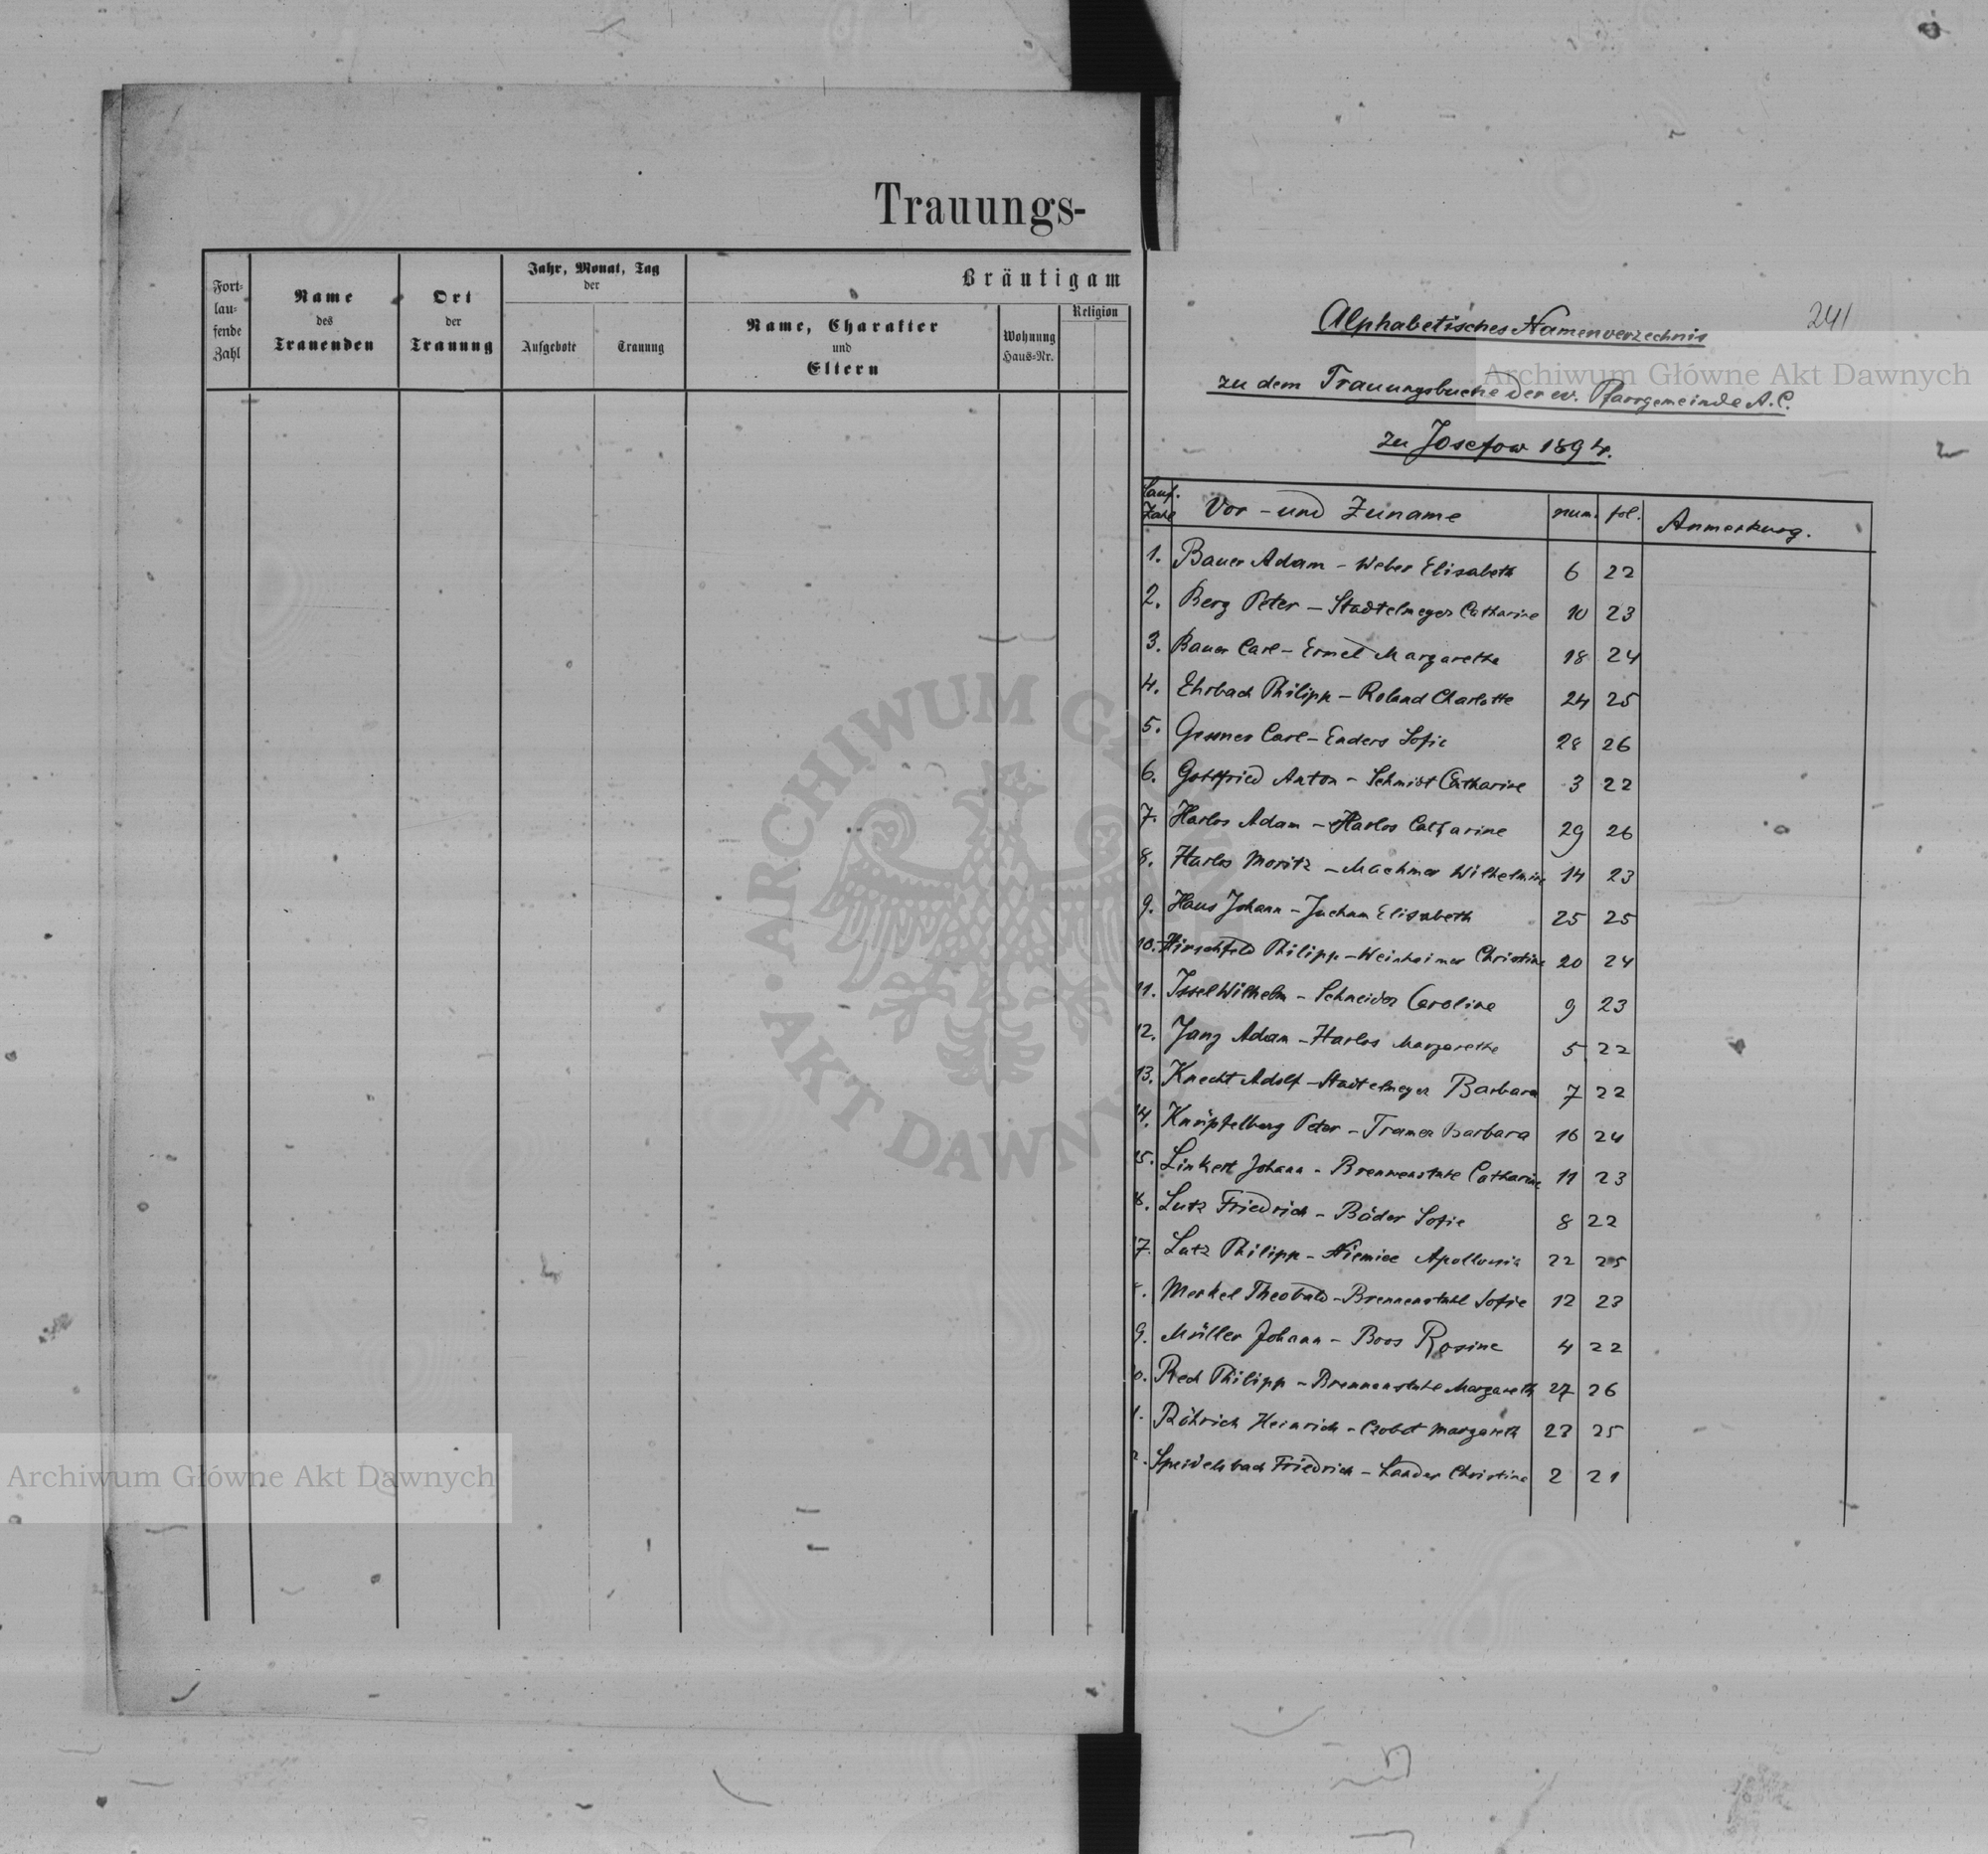 Trauungs-
Fort-
lau-
fende
Zahl
Name
des
Trauenden
Ort
der
Trauung
Jahr, Monat, Tag
der
Aufgebote
Trauung
Bräutigam
Name, Charakter
und
Eltern
Wohnung
Haus-Nr.
Religion
Alphabetisches Namenverzechnis
241
zu dem Trauungsbuche der ev. Pfarrgemeinde A. C.
zu Josefow 1894.
Lauf. Zahl Vor - und Zuname num. fol. Anmerkung.
1. Bauer Adam - Weber Elisabeth 6 22
2. Berg Peter - Stadtelmeyer Catharine 10 23
3. Bauer Carl - Margarethe 18 24
4. Ehrbach Philipp - Roland Charlotte 24 25
5. Gessner Carl - Enders Sofie 28 26
6. Gottfried Anton - Schmidt Catharine 3 22
7. Harlos Adam - Harlos Catharine 29 26
8. Harlos Moritz - Machmer Wilhelmine 14 23
9. Haus Johann - Juchum Elisabeth 25 25
10. Hirschfeld Philipp - Weinheimer Christine 20 24
11. Issel Wilhelm - Schneider Caroline 9 23
12. Jung Adam - Harlos Margarethe 5 22
13. Knecht Adolf - Stadtelmeyer Barbara 7 22
14. Knüpfelberg Peter - Tramer Barbara 16 24
15. Linkert Johann - Brennenstuhl Catharine 11 23
6. Lutz Friedrich - Bäder Sofie 8 22
7. Lutz Philipp - Niemiec Apollonia 22 25
Merkel Theobald - Brennenstuhl Sofie 12 23
9. Müller Johann - Boos Rosine 4 22
0. Rech Philipp - Brennenstuhl Margareth 27 26
1. Röhrich Heinrich - Margareth 23 25
2. Speidelsbach Friedrich - Lander Christine 2 21
Archiwum Główne Akt Dawnych
Archiwum Główne Akt Dawnych
ARCHIWUM GŁÓWNE
AKT DAWNYCH